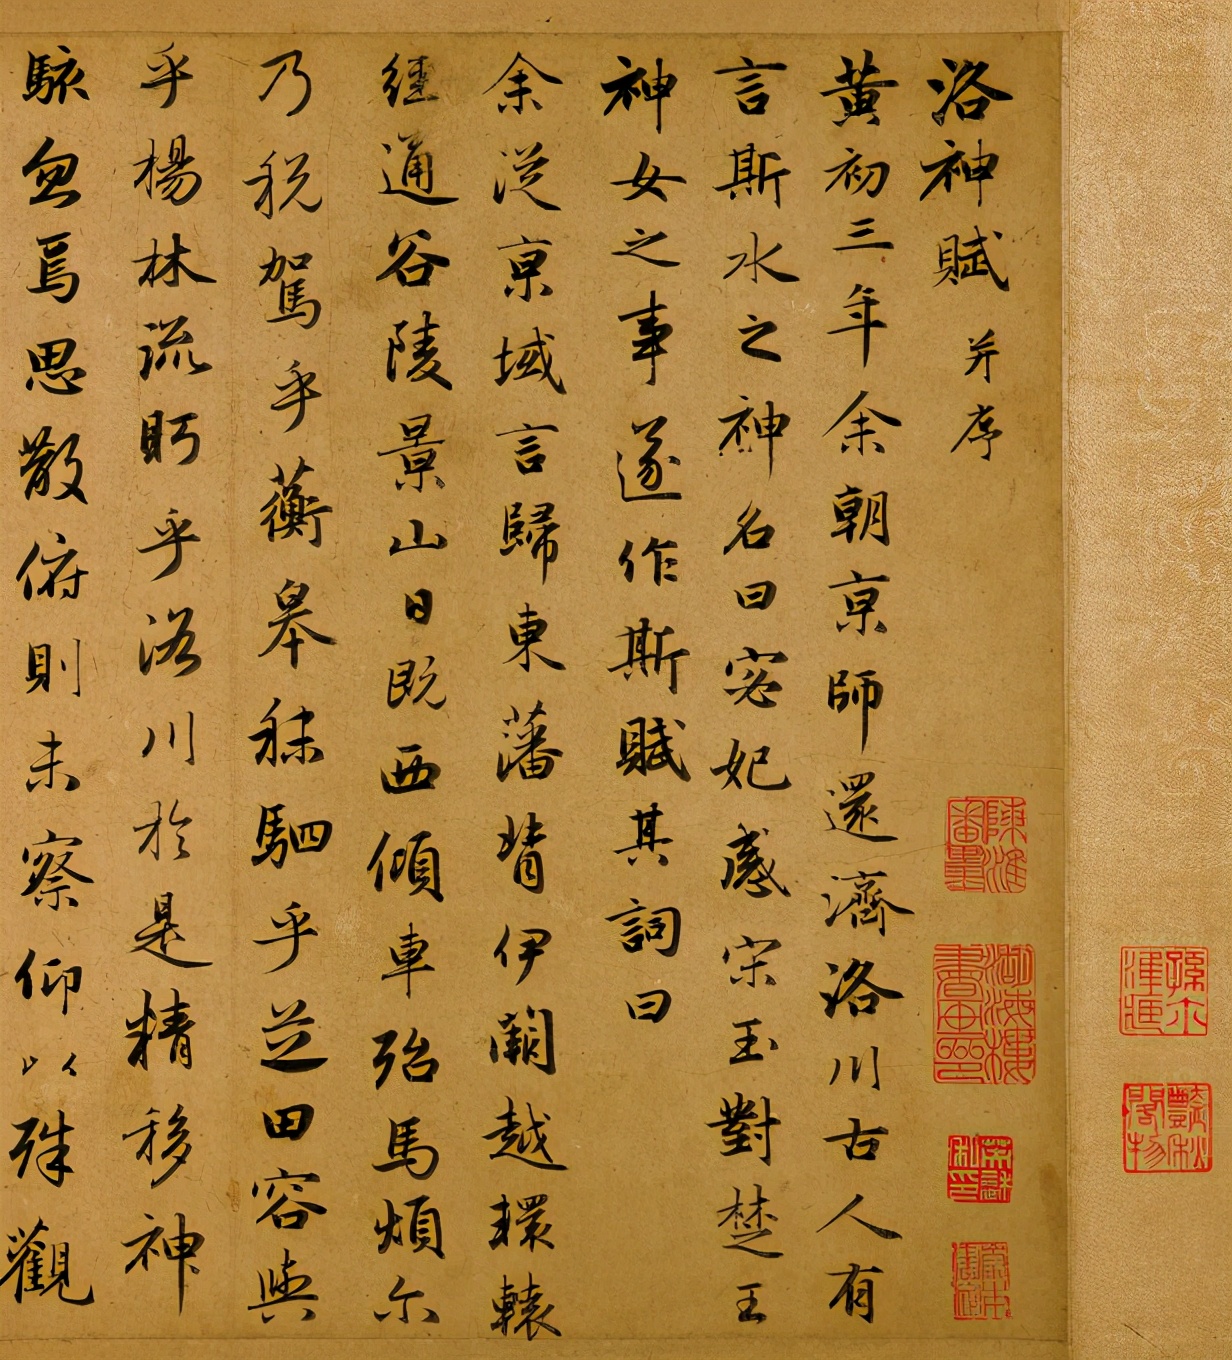 豔秋閣物
洛神賦 并序
黃初三年余朝京師還濟洛川古人有
言斯水之神名曰宓妃感宋玉對楚王
神女之事遂作斯賦其詞曰
余從京域言歸東藩背伊闕越轘轅
經通谷陵景山日既西傾車殆馬煩尔
乃稅駕乎蘅皋秣駟乎芝田容與
乎楊林流眄乎洛川於是精移神
駭忽焉思散俯則未察仰以殊觀